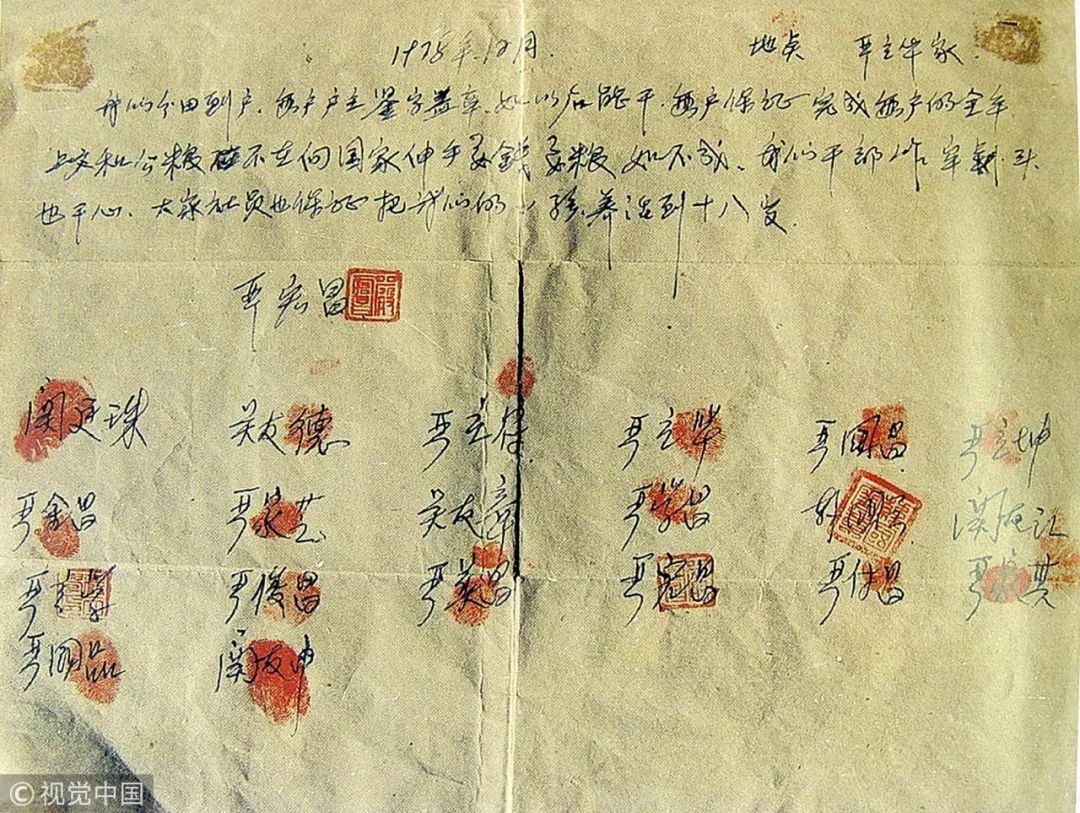 1978年12月. 地点 严立华家.
我们分田到户. 每户户主鉴字盖章. 如以后能干. 每户保证完成每户的全年
上交和公粮 不在向国家伸手要钱要粮 如不成. 我们干部作牢刹头
也干心. 大家社员也保证把我们的小孩养活到十八岁.
严宏昌
关廷珠 关友德 严立符 严立华 严国昌 严立坤
严金昌 严家芝 关友章 严学昌 韩国云 关友江
严立学 严俊昌 严美昌 严宏昌 严付昌 严家其
严国品 关友申
©视觉中国